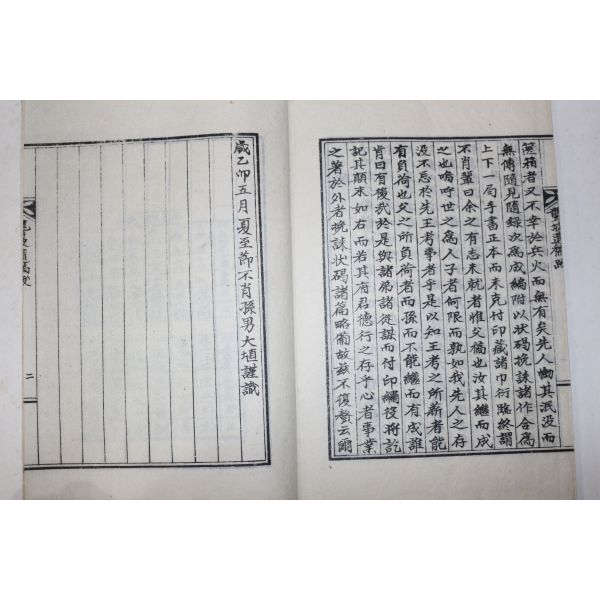 篋箱者又不幸於兵火而無有矣先人慟其泯沒而
無傳隨見隨錄次為成編附以狀碣挽誄諸作合為
上下一局手書正本而未克付印藏諸巾衍臨終謂
不肖輩曰余之有志未就者惟父稿也汝其繼而成
之也嗚呼世之為人子者何限而孰如我先人之存
沒不忘於先王考事者乎是以知王考之所薪者能
有負荷也父之所負荷者而孫而不能繼而有成誰
肯曰有後我於是與諸弟諸從謀而付印繡役將訖
記其顛末如右而若其府君德行之存乎心者事業
之著於外者挽誄狀碣諸篇略備故玆不復贅云爾
歲乙卯五月夏至節不肖孫男大埴謹識
二